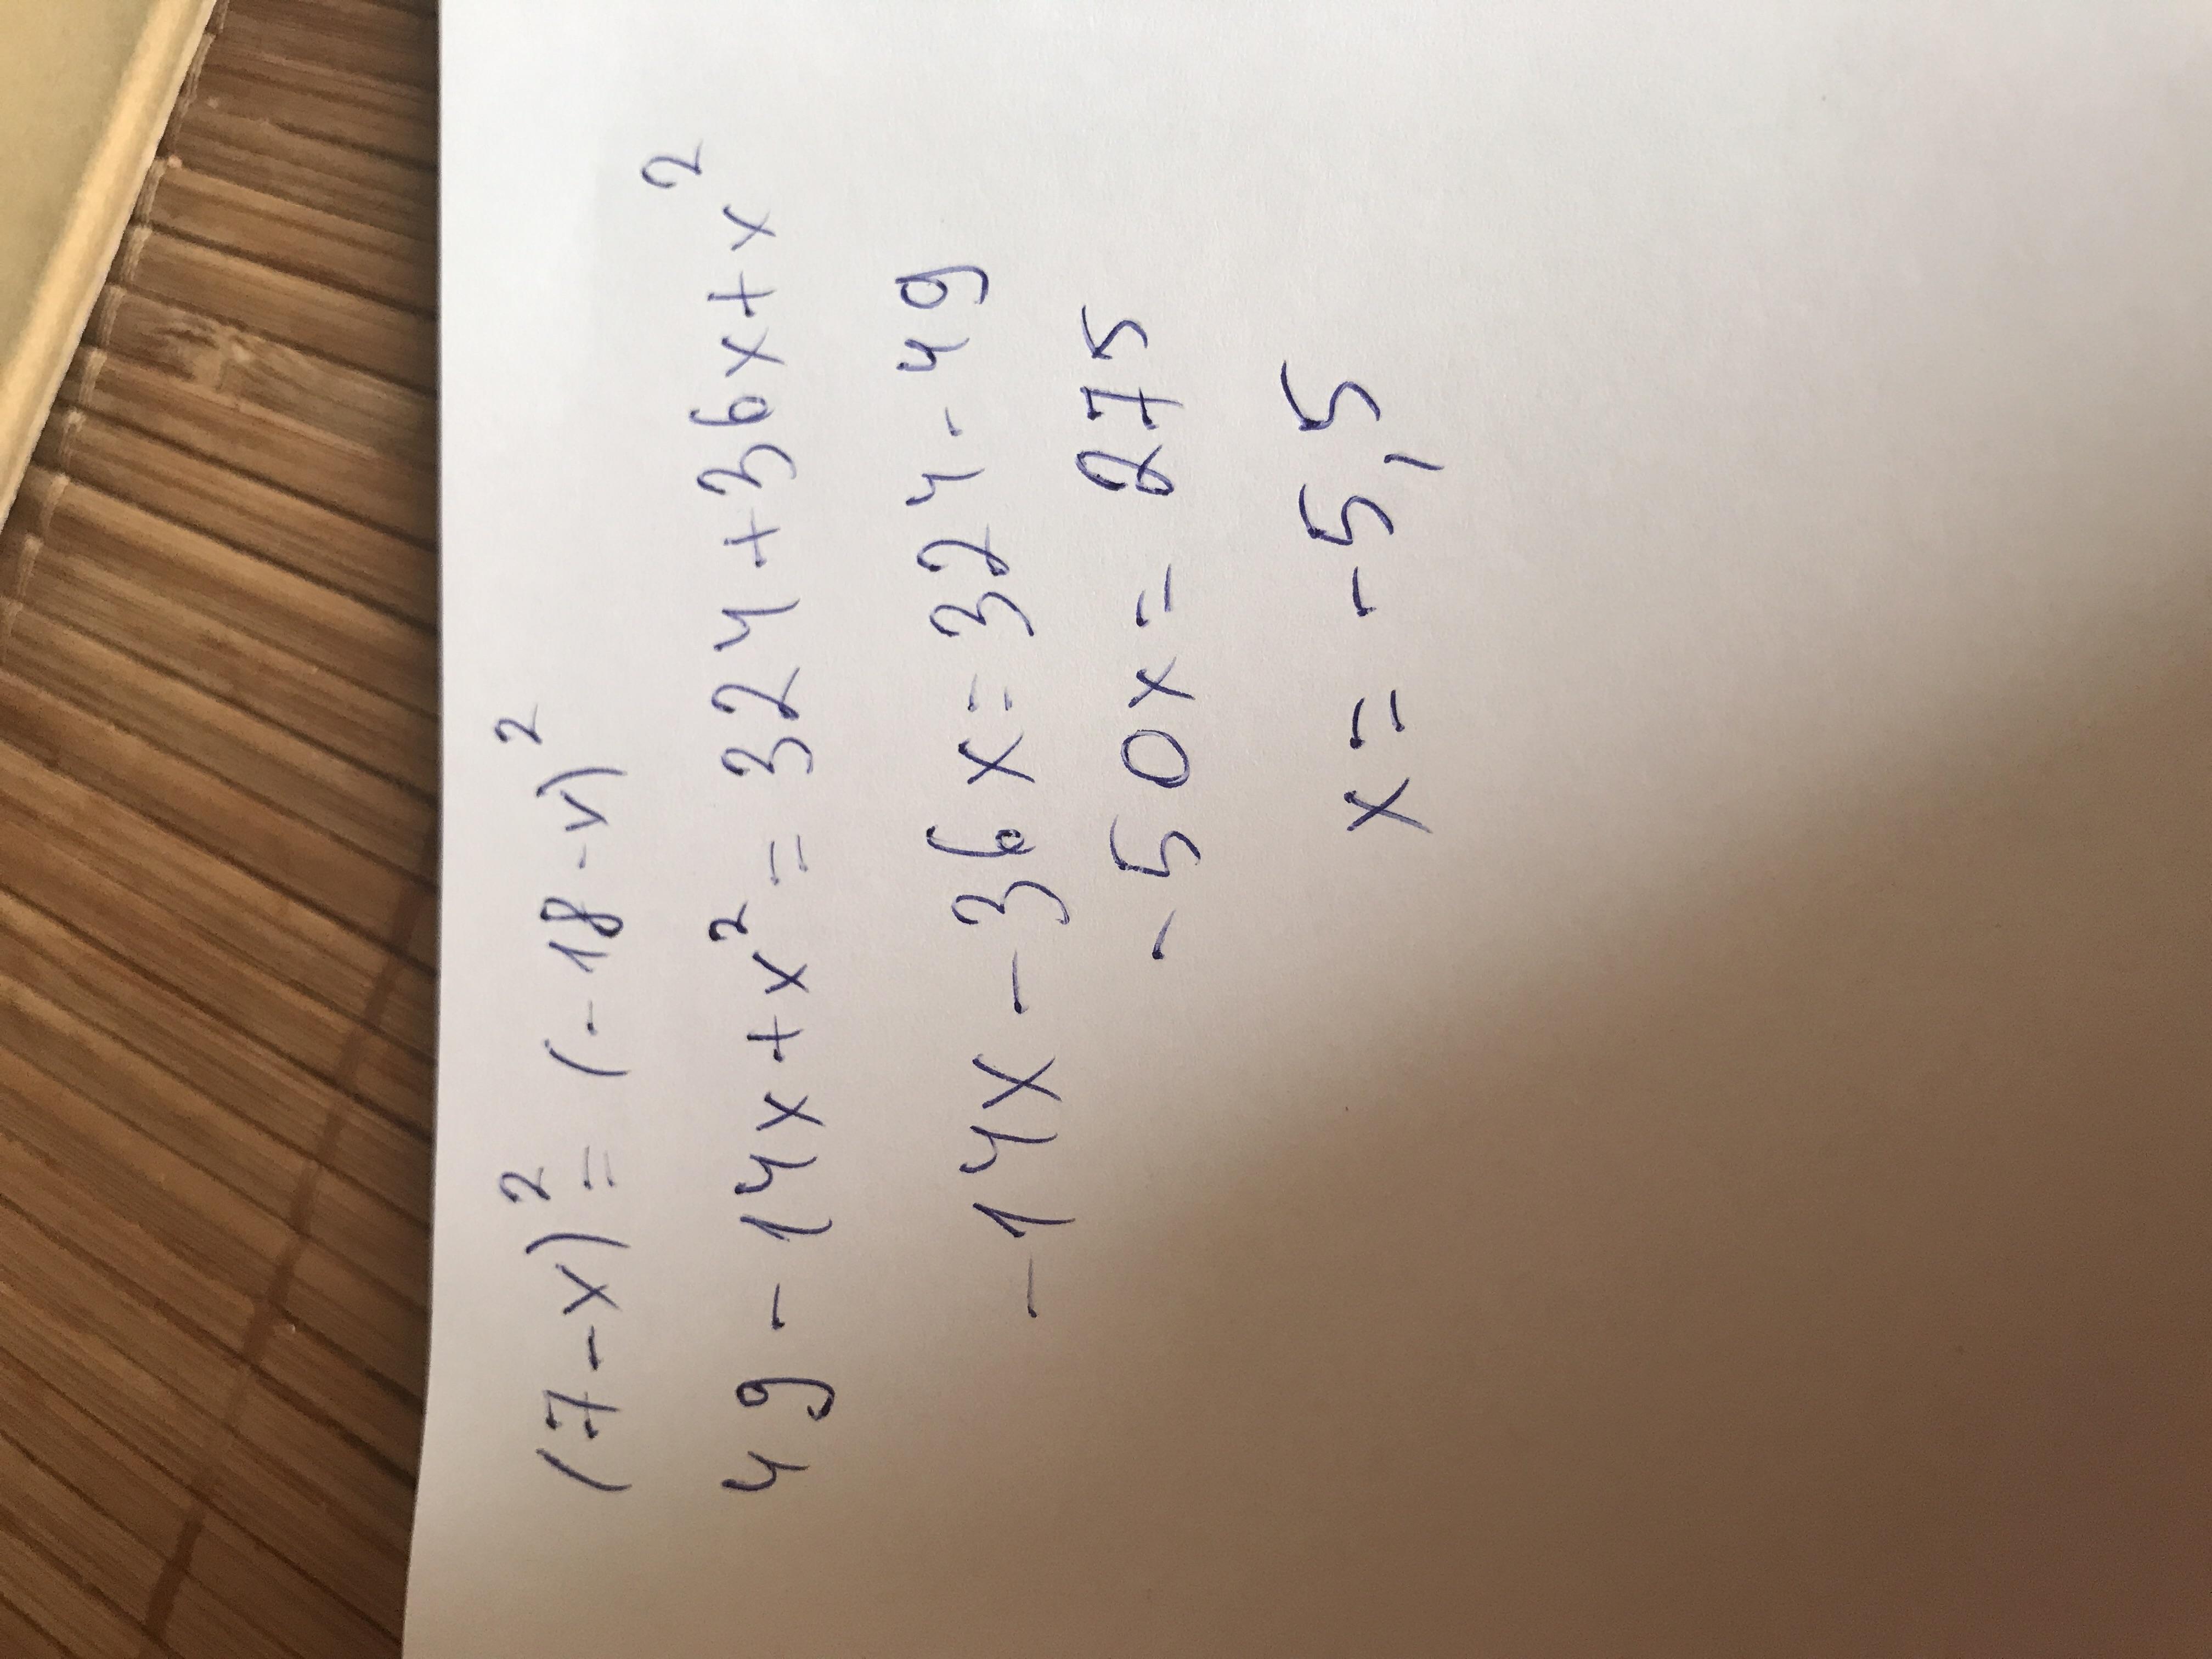 (7-x)²=(-18-x)²
49-14x+x²=324+36x+x²
-14x-36x=324-49
-50x=275
x=-5,5